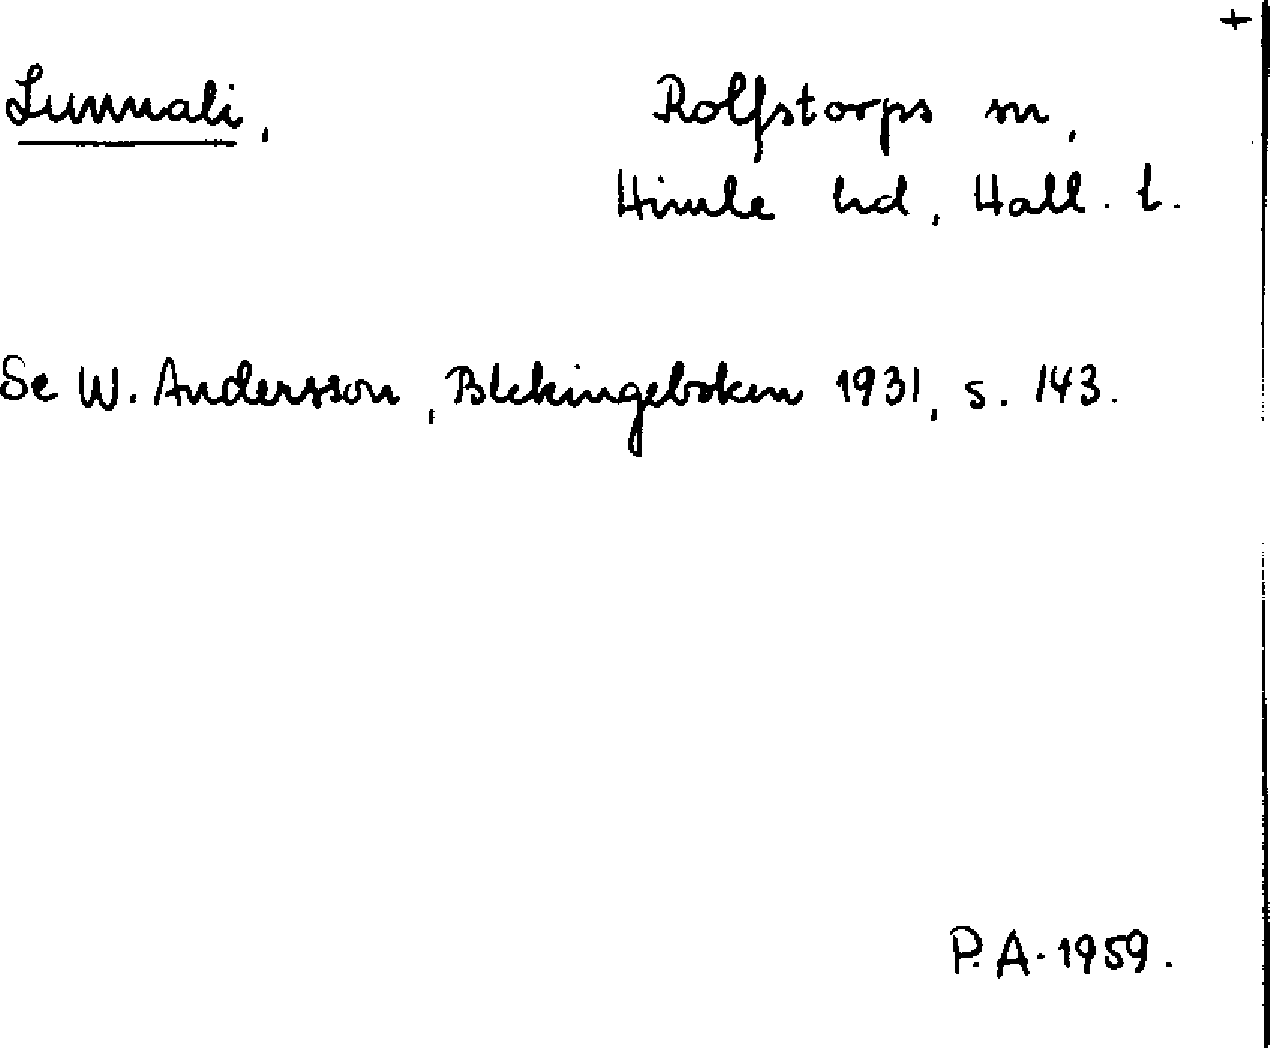 +
Lunnali, Rolfstorps sn,
Himle hd, Hall. l.
Se W. Andersson, Blekingeboken 1931, s. 143.
P. A. 1959.